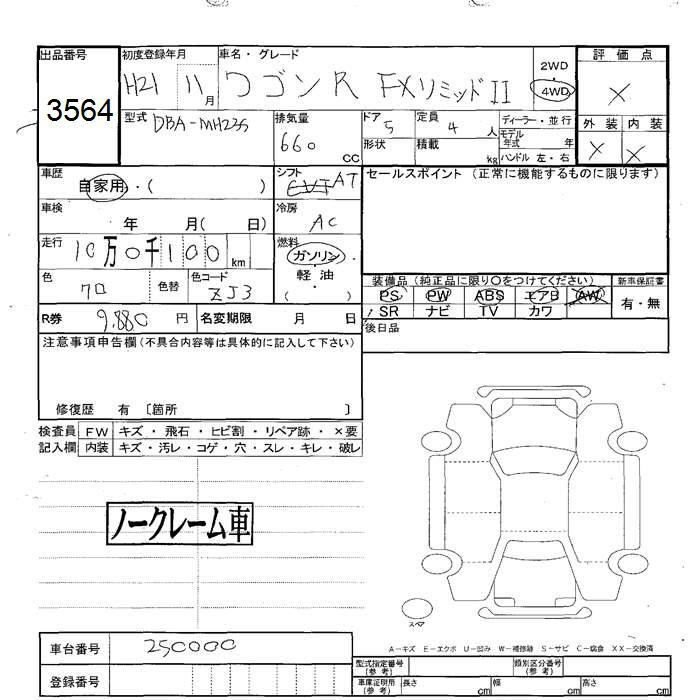 出品番号 初度登録年月 車名・グレード 評価点
3564 H21 11月 ワゴンR FXリミッドII 2WD・4WD ×
型式 DBA-MH23S 排気量 660 CC ドア 5 定員 4 人 ディーラー・並行 外装 内装
形状 積載 kg モデル年式 年 × ×
ハンドル 左・右
車歴 自家用・( ) シフト AT セールスポイント(正常に機能するものに限ります)
車検 年 月( 日) 冷房 AC
走行 10万0千100 km 燃料 ガソリン
軽油
・( )
色 クロ 色替 色コード ZJ3 装備品(純正品に限り○をつけてください) 新車保証書
PS PW ABS エアB AW 有・無
SR ナビ TV カワ
R券 9.880 円 名変期限 月 日 後日品
注意事項申告欄(不具合内容等は具体的に記入して下さい)
修復歴 有 〔箇所 〕
検査員 FW キズ・飛石・ヒビ割・リペア跡・×要
記入欄 内装 キズ・汚レ・コゲ・穴・スレ・キレ・破レ
ノークレーム車
スペア
A-キズ E-エクボ U-凹み W-補修跡 S-サビ C-腐食 XX-交換済
車台番号 250000 型式指定番号(参考) 類別区分番号(参考)
登録番号 車庫証明用(参考) 長さ cm 幅 cm 高さ cm